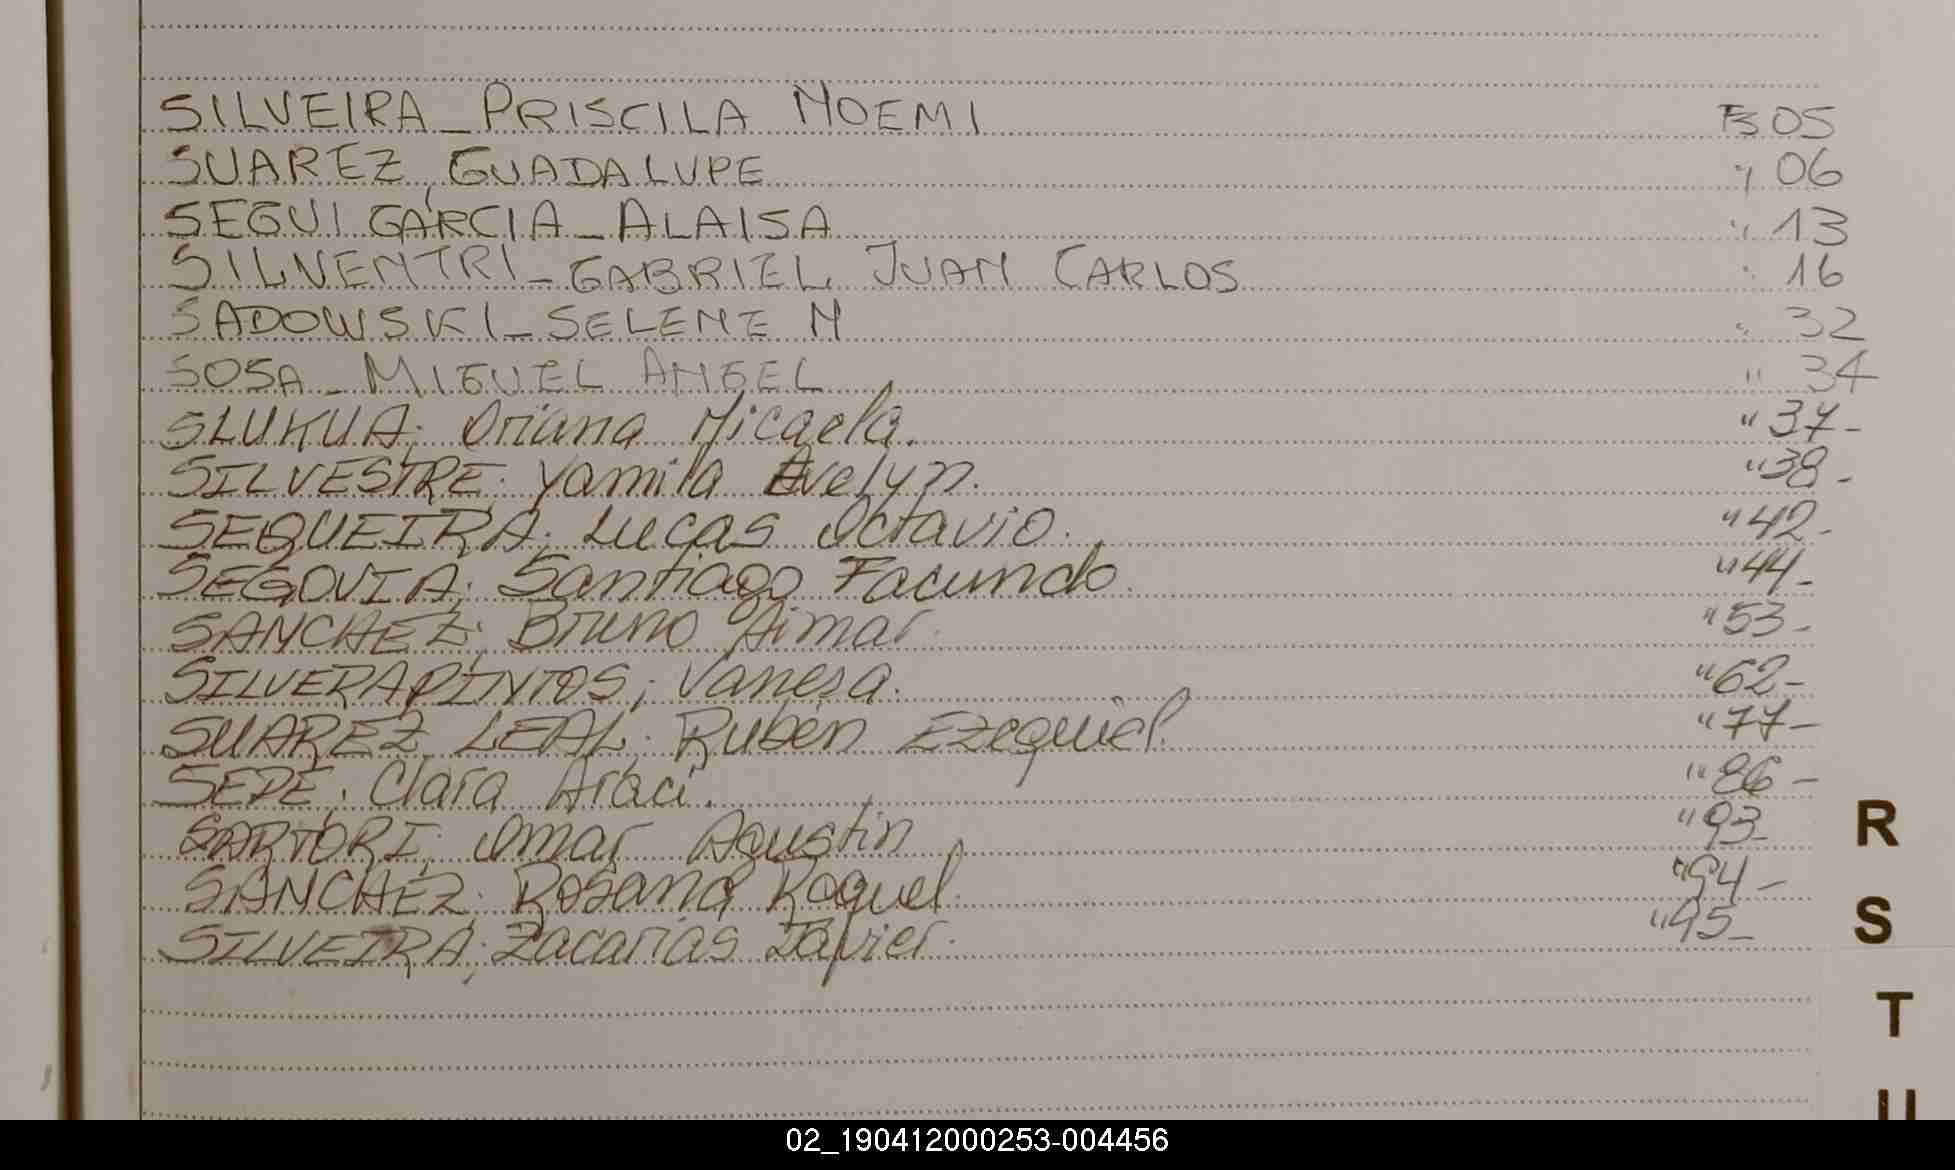 SILVEIRA_PRISCILA NOEMI FS 05
SUAREZ, GUADALUPE " 06
SEGUI GARCIA_ALAISA " 13
SILVENTRI_GABRIEL JUAN CARLOS " 16
SADOWSKI_SELENE N " 32
SOSA_MIGUEL ANGEL " 34
SLUKUA; Oriana Micaela. " 37-
SILVESTRE; Yamila Evelyn. " 38-
SEQUEIRA; Lucas Octavio. " 42-
SEGOVIA; Santiago Facundo. " 44-
SANCHEZ; Bruno Aimar. " 53-
SILVERAPINTOS; Vanesa. " 62-
SUAREZ LEAL; Rubén Ezequiel. " 77-
SEPE; Clara Araci. " 86-
SARTORI; Omar Agustin " 93-
SANCHEZ; Rosana Raquel. " 94-
SILVEIRA; Zacarías Javier. " 95-
R
S
T
U
02_190412000253-004456